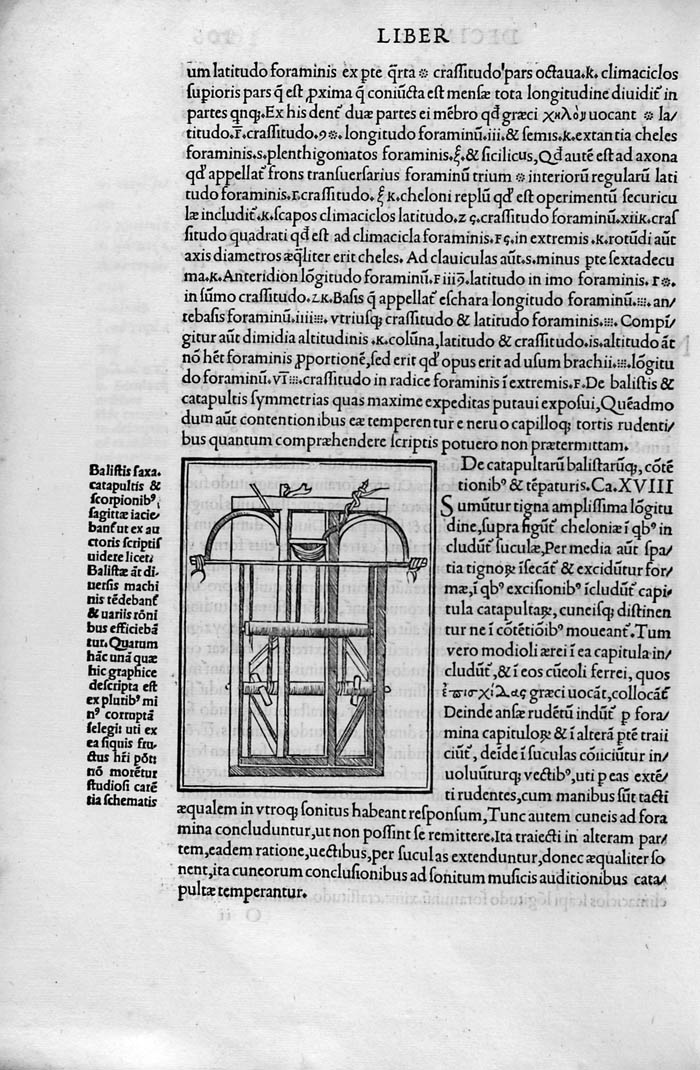 LIBER
um latitudo foraminis ex pte q̄rta ※ crassitudo pars octaua.k. climaciclos
supioris pars q̄ est ꝓxima q̄ coniūcta est mensæ tota longitudine diuidit̄ in
partes qnq;.Ex his dent̄ duæ partes ei mēbro qđ græci χηλὸν uocant ※ la⸗
titudo.Γ̄.crassitudo.9※.longitudo foraminū.iii.& semis.k.extantia cheles
foraminis.s.plenthigomatos foraminis.ξ.& sicilicus, Qđ autē est ad axona
qđ appellat̄ frons transuersarius foraminū trium ※ interiorū regularū lati
tudo foraminis.Γ.crassitudo.ξ k.cheloni replū qđ est operimentū securicu
læ includit̄.k.scapos climaciclos latitudo.z ς.crassitudo foraminū.xiik.cras
situdo quadrati qđ est ad climacicla foraminis.Fς.in extremis .k.rotūdi aūt
axis diametros æq̄liter erit cheles. Ad clauiculas aūt.s.minus pte sextadecu
ma.k.Anteridion lōgitudo foraminū.F iiiↄ.latitudo in imo foraminis.Γ※.
in sūmo crassitudo.z.k.Basis q̄ appellat̄ eschara longitudo foraminū.⁙.an⸗
tebasis foraminū.iiii⁙.vtriusq; crassitudo & latitudo foraminis.⁙.Compī⸗
gitur aūt dimidia altitudinis .k.colūna, latitudo & crassitudo.is.altitudo āt
nō hēt foraminis ꝓportionē, sed erit qđ opus erit ad usum brachii.⁙.lōgitu
do foraminū.VI⁙.crassitudo in radice foraminis ī extremis.F.De balistis &
catapultis symmetrias quas maxime expeditas putaui exposui, Quēadmo
dum aūt contentionibus eæ temperentur e neruo capilloq; tortis rudenti⸗
bus quantum compræhendere scriptis potuero non prætermittam.
Balistis saxa.
catapultis &
scorpionib⁹
sagittæ iacie⸗
bant̄ ut ex au
ctoris scriptis
uidere licet:
Balistæ āt di⸗
uersis machi
nis tēdebant̄
& uariis rōni
bus efficiebā
tur. Quarum
hāc unā quæ
hic graphice
descripta est
ex plurib⁹ mi
n⁹ corruptā
selegit uti ex
ea siquis fru⸗
ctus hr̄i pōt:
nō morētur
studiosi carē
tia schematis
De catapultarū balistarūq; cōtē
tionib⁹ & tēpaturis. Ca.XVIII
Sumūtur tigna amplissima lōgitu
dine, supra figūt̄ cheloniæ ī qb⁹ in
cludūt̄ suculæ, Per media aūt spa⸗
tia tignoꝝ īsecāt̄ & excidūtur for⸗
mæ, ī qb⁹ excisionib⁹ īcludūt̄ capi⸗
tula catapultaꝝ, cuneisq; distinen
tur ne ī cōtētiōib⁹ moueant̄. Tum
vero modioli ærei ī ea capitula in⸗
cludūt̄, & ī eos cūeoli ferrei, quos
ἐπισχίδας græci uocāt, collocāt̄
Deinde ansæ rudētū indūt̄ p fora⸗
mina capituloꝝ & ī alterā ptē traii
ciūt̄, deīde ī suculas cōiiciūtur in⸗
uoluūturq; vectib⁹, uti p eas extē⸗
ti rudentes, cum manibus sūt tacti
æqualem in vtroq; sonitus habeant responsum, Tunc autem cuneis ad fora
mina concluduntur, ut non possint se remittere. Ita traiecti in alteram par⸗
tem, eadem ratione, uectibus, per suculas extenduntur, donec æqualiter so
nent, ita cuneorum conclusionibus ad sonitum musicis auditionibus cata⸗
pultæ temperantur.